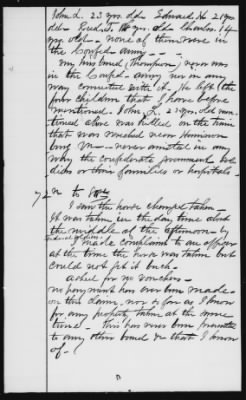 John d. 23 yrs. old Edward H 21 yrs
old Fred. J. 18 yrs. old Charles 14
yrs old - none of them were in
the Confed - army - - -
my husband (Thompson) never was
in the Confed - army nor in any
way connected with it. He left the
four children that I have before
mentioned. John J. 23 yrs old men-
tioned above was killed on the train
that was wrecked near Harrison
burg Va - never assisted in any
way the confederate government sol-
diers or their families or hospitals -
72 to
I saw the horse charged taken -
It was taken in the day time about
the middle of the afternoon - by
Federal soldiers.
I made complaint to an officer
at the time the horse was taken but
could not get it back -
asked for no vouchers -
no payment has ever been made -
on this claim, nor so far as I know
for any property taken at the same
time. This has never been presented
to any other board &c that I know
of -